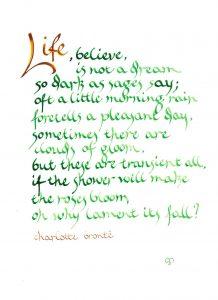 Life, believe,
is not a dream
so dark as sages say;
oft a little morning rain
foretells a pleasant day.
sometimes there are
clouds of gloom,
but these are transient all,
if the shower will make
the roses bloom,
oh why lament its fall?
charlotte brontë